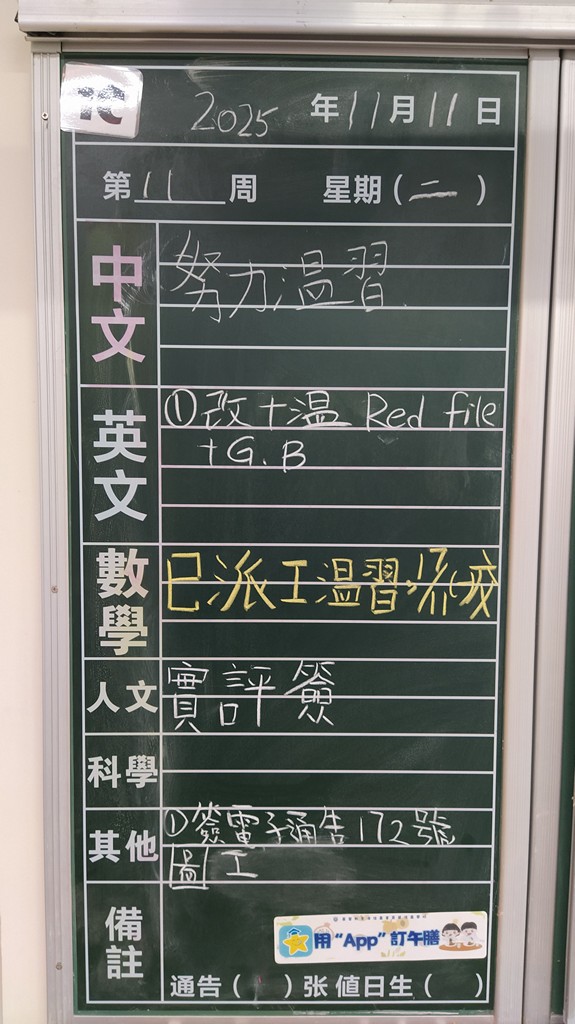 2025 年 11 月 11 日
第 11 周 星期(二)
中文
努力溫習.
英文
①改+溫 Red file
+G.B
數學
已派工溫習
人文
實評簽
科學
其他
①簽電子通告172號
圖工
備註
用“App”訂午膳
通告( )张 值日生( )